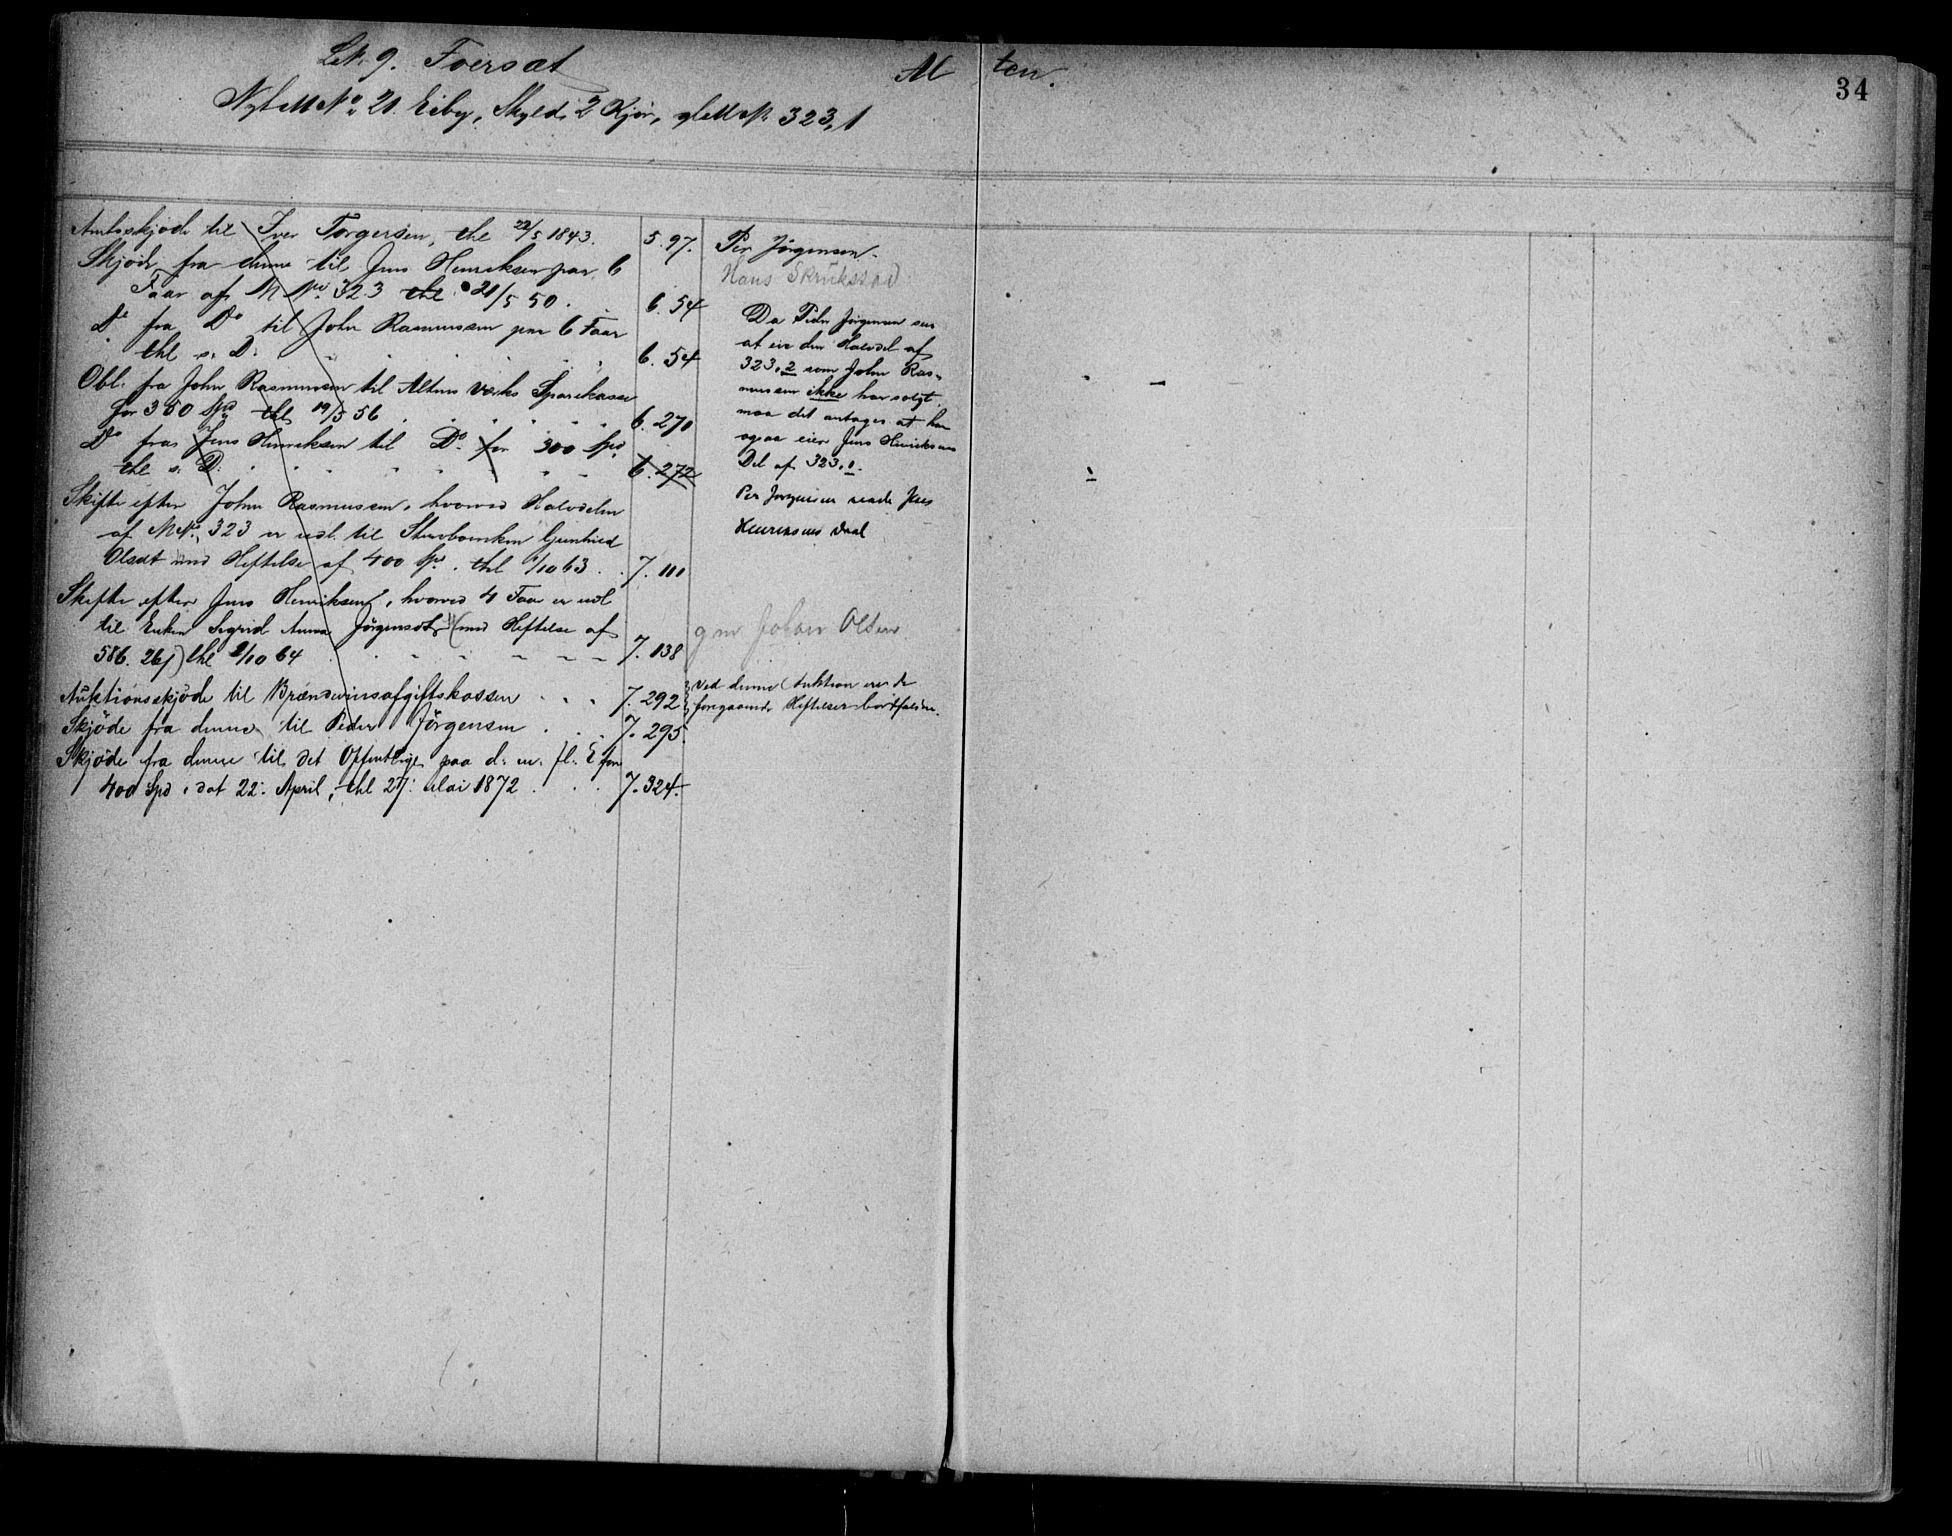 L.N. 9. Foersæt Al ten.
34
Nyt M No 21. Eiby, Skyld 2 Kjør, gl. M. N. 323,1
Amtsskjøde til Iver Torgersen, thl 22/5 1843. 5.97.
Skjøde fra denne til Jens Henriksen paa 6
Faar af M No. 323 thl 21/5 50. 6.54
Do fra Do til John Rasmussen paa 6 Faar
thl s. D. 6.54
Obl. fra John Rasmussen til Altens Værks Sparekasse
for 350 Spd thl 19/5 56 6.270
Do fra Jens Henriksen til Do for 300 Spd.
thl s. D. 6.272
Skifte efter John Rasmussen, hvorved Halvdelen
af M No. 323 er udl. til Stervboenken Gunhild
Olsdt med Heftelse af 400 Spd. thl /10 63. 7.111
Skifte efter Jens Henriksen, hvorved 4 Faar er udl
til Enken Sigrid Anna Jörgensdtr (med Heftelse af
586. 26ʃ) thl 2/10 64 7.138
Auktionsskjöde til Brændevinsafgiftskassen 7.292
Skjöde fra denne til Peder Jörgensen 7.295.
Skjöde fra denne til det Offentlige paa d. m. fl. E for
400 Spd, dat 22. April, thl 27. Mai 1872 7.324.
Per Jörgensen.
Hans Skrukstad
Da Peder Jörgensen sees
at eie den Halvdel af
323,2 som John Ras-
mussen ikke har solgt,
maa det antages at han
ogsaa eier Jens Henriksens
Del af 323,1.
Per Jörgensen  Jens
Henriksens Deel
gm Johan Olsen
Ved denne Auktion er de
foregaaende Heftelser bortfaldne.